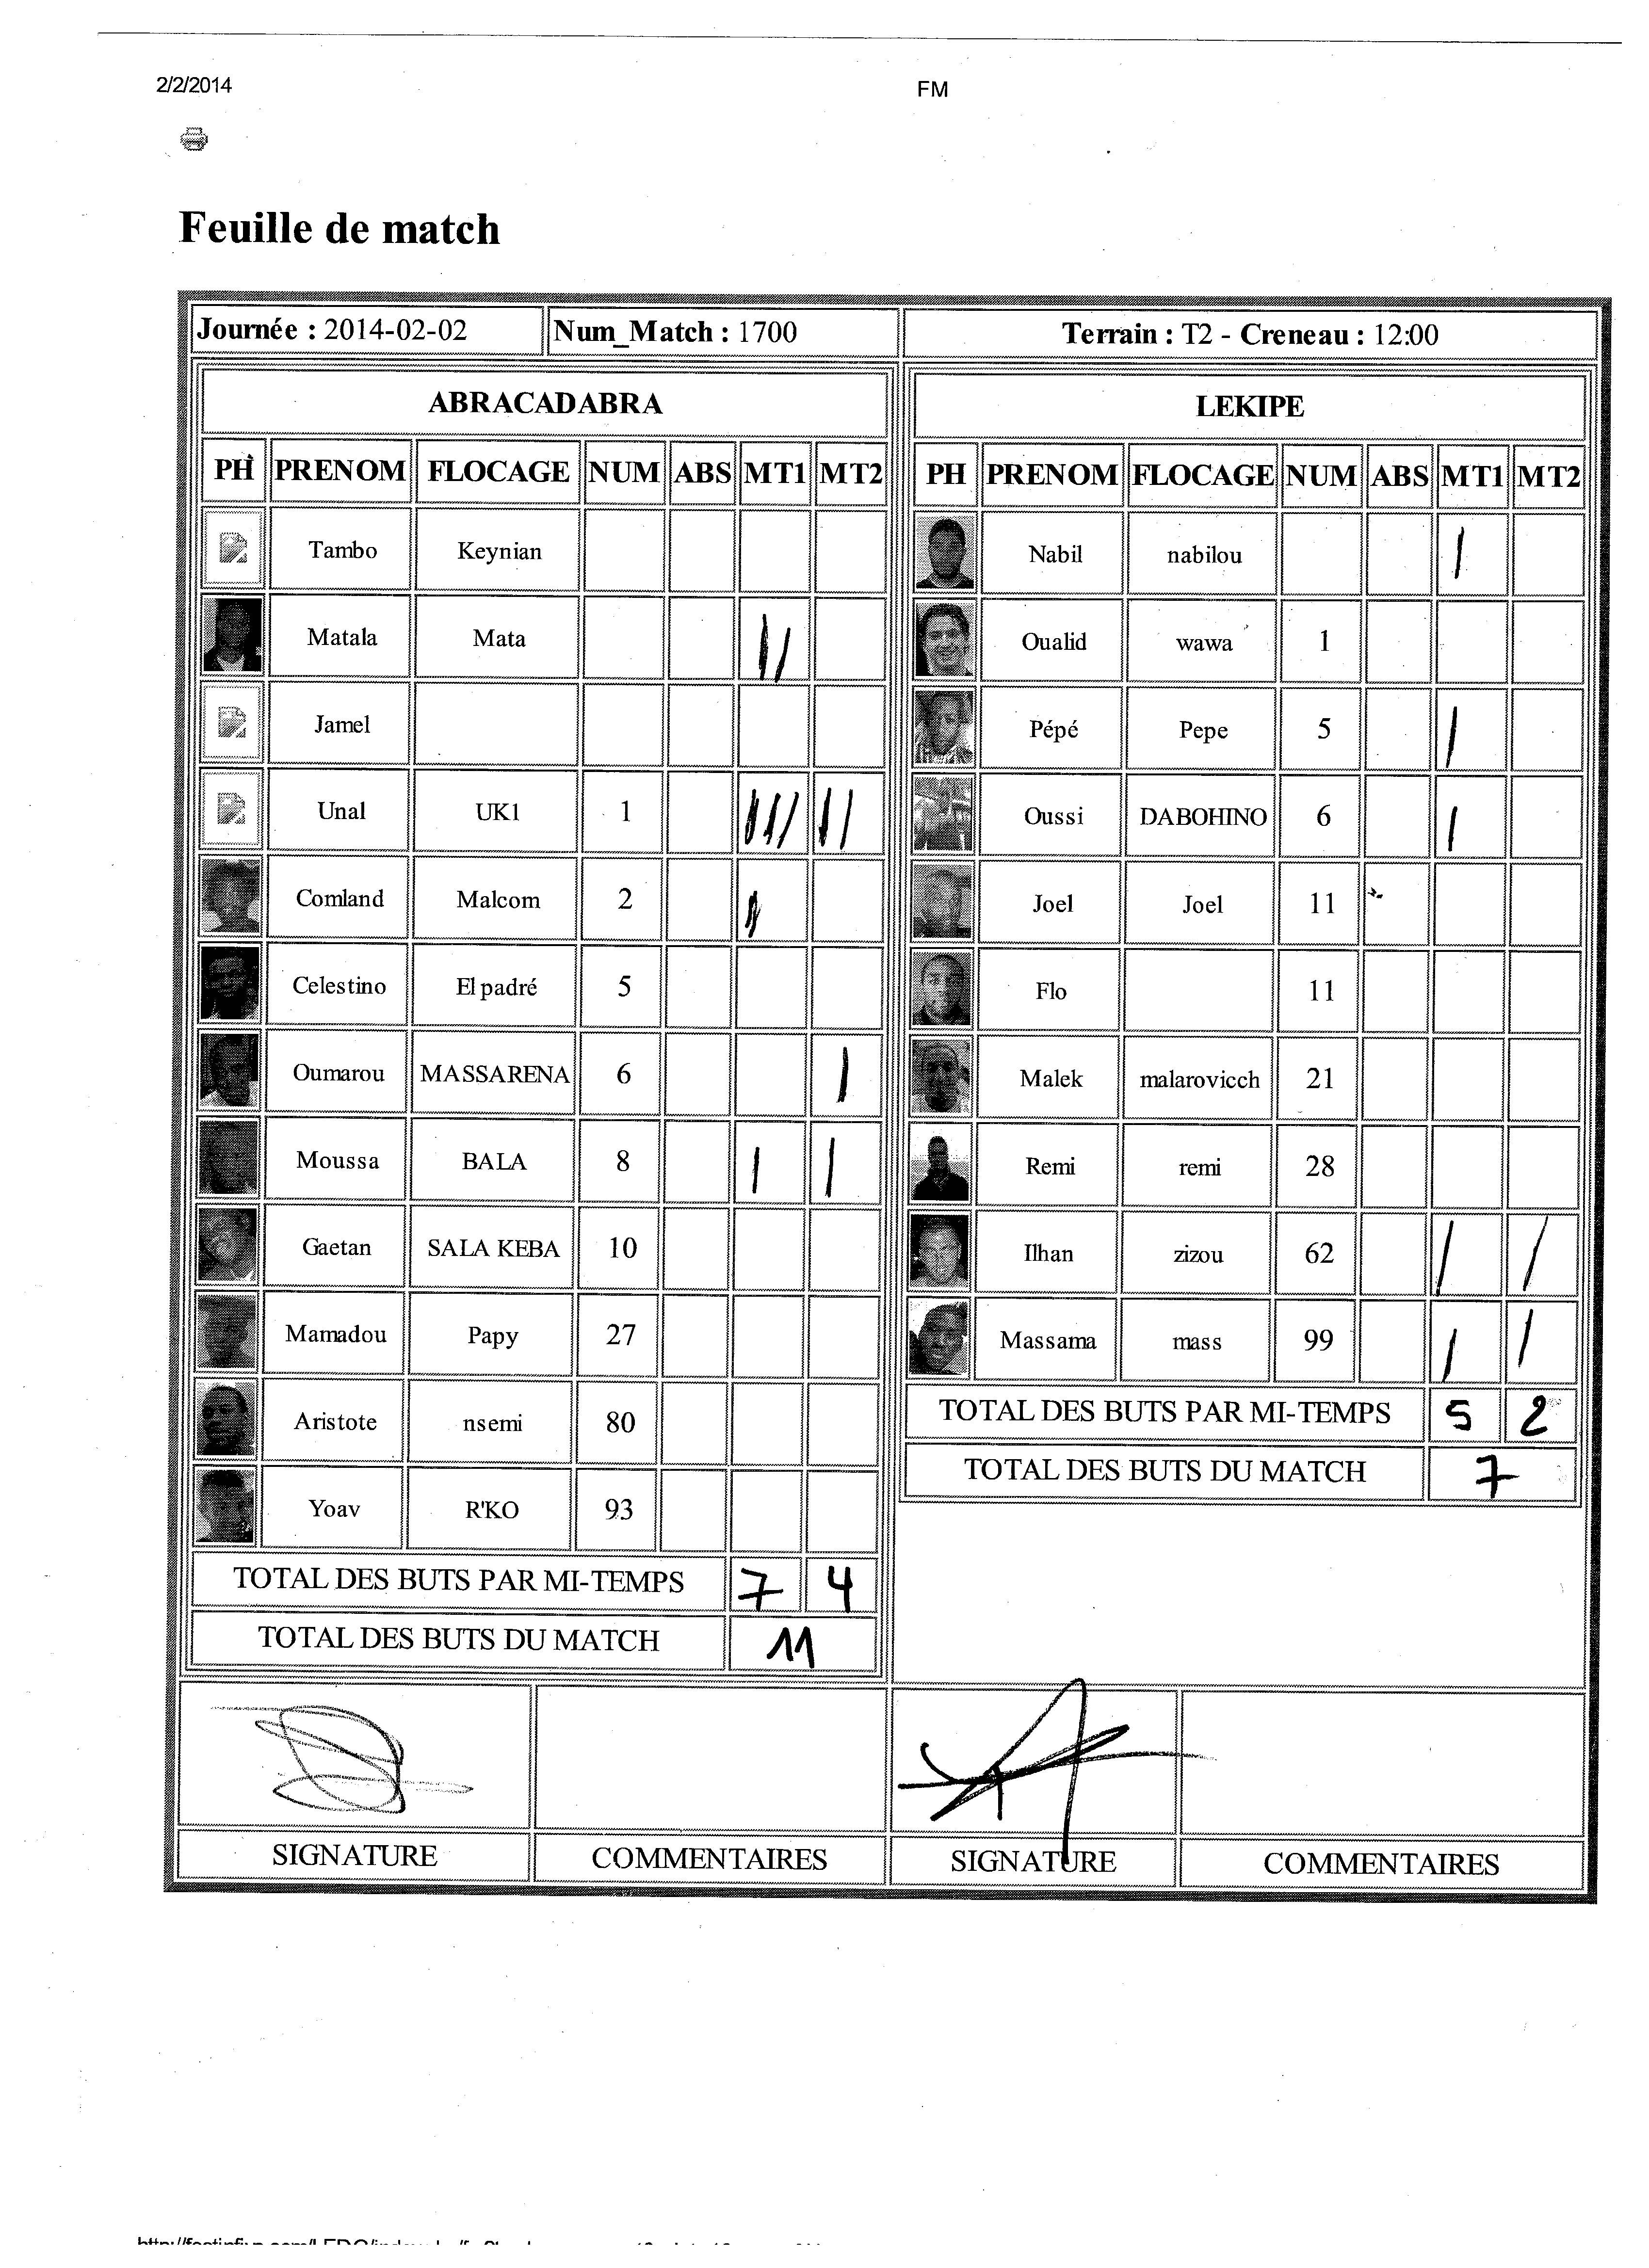 2/2/2014 FM
Feuille de match
Journée : 2014-02-02 Num_Match : 1700 Terrain : T2 - Creneau : 12:00
ABRACADABRA
PH PRENOM FLOCAGE NUM ABS MT1 MT2
Tambo Keynian
Matala Mata
Jamel
Unal UK1 1
Comland Malcom 2
Celestino El padré 5
Oumarou MASSARENA 6
Moussa BALA 8
Gaetan SALA KEBA 10
Mamadou Papy 27
Aristote nsemi 80
Yoav R'KO 93
TOTAL DES BUTS PAR MI-TEMPS 7 4
TOTAL DES BUTS DU MATCH 11
LEKIPE
PH PRENOM FLOCAGE NUM ABS MT1 MT2
Nabil nabilou
Oualid wawa 1
Pépé Pepe 5
Oussi DABOHINO 6
Joel Joel 11
Flo 11
Malek malarovicch 21
Remi remi 28
Ilhan zizou 62
Massama mass 99
TOTAL DES BUTS PAR MI-TEMPS 5 2
TOTAL DES BUTS DU MATCH 7
SIGNATURE COMMENTAIRES SIGNATURE COMMENTAIRES